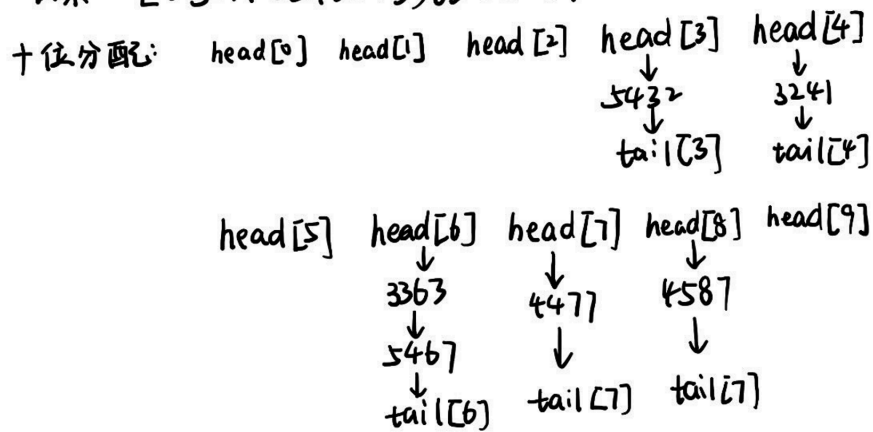 十位分配: head[0] head[1] head[2] head[3] head[4]
↓ ↓
5432 3241
↓ ↓
tail[3] tail[4]
head[5] head[6] head[7] head[8] head[9]
↓ ↓ ↓
3363 4477 4587
↓ ↓ ↓
5467 tail[7] tail[7]
↓
tail[6]